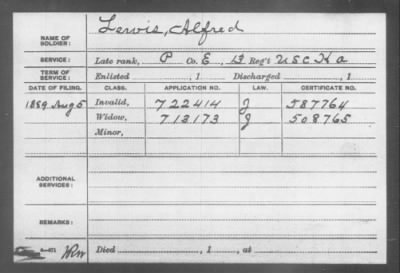 NAME OF SOLDIER: Lewis, Alfred
SERVICE: Late rank, P Co. E, Reg't U S C H A
TERM OF SERVICE: Enlisted , 1 Discharged , 1
DATE OF FILING. CLASS. APPLICATION NO. LAW. CERTIFICATE NO.
1889 Aug 5 Invalid, 722414 J 587764
Widow, 713173 J 508765
Minor,
ADDITIONAL SERVICES:
REMARKS:
Died , 1 , at